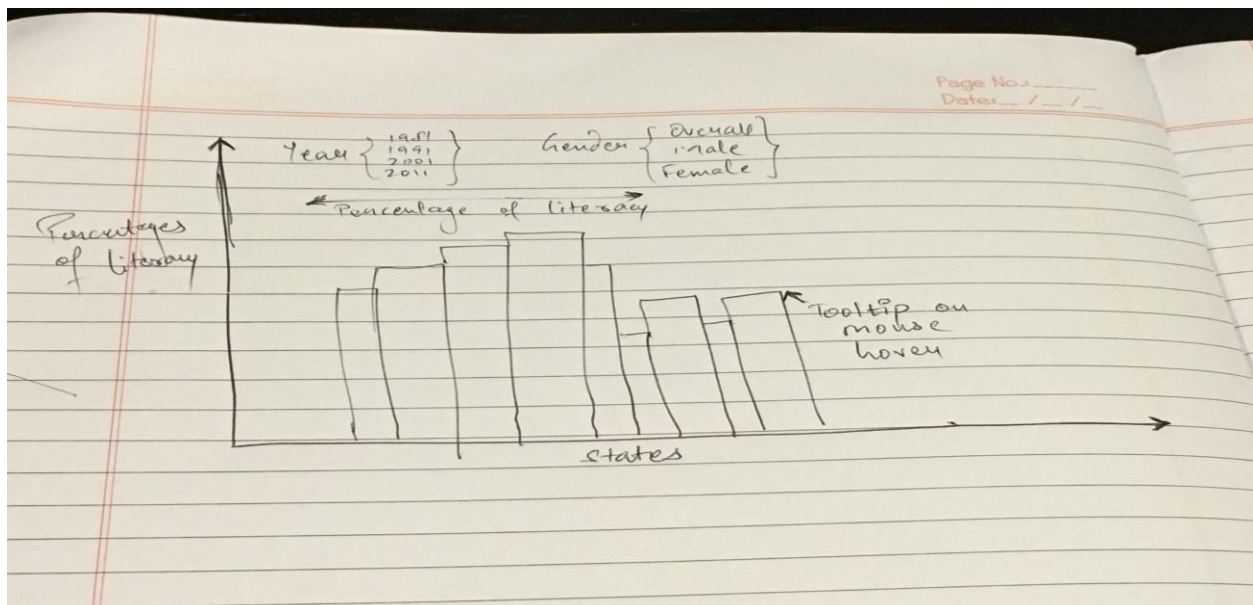 Page No.:
Date: / /
Year { 1981
1991
2001
2011 }
Gender { Overale
male
Female }
Percentage of literacy
Percentages
of literacy
Tooltip on
mouse
hover
States